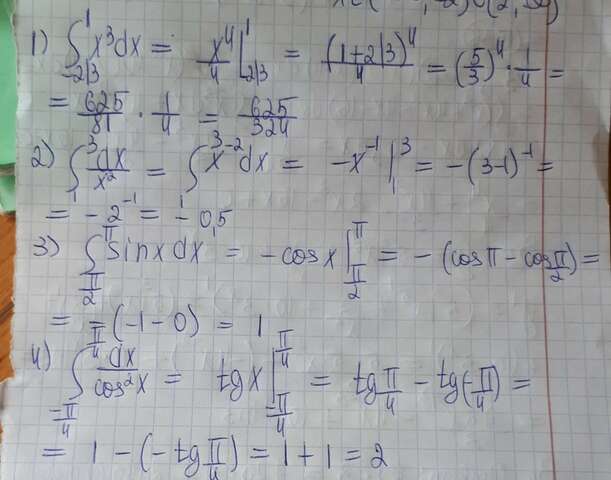 1) ∫_{-2/3}^{1} x³dx = x⁴/4 |_{-2/3}^{1} = (1+2/3)⁴/4 = (5/3)⁴ · 1/4 =
= 625/81 · 1/4 = 625/324
2) ∫_{1}^{3} dx/x² = ∫_{1}^{3} x⁻²dx = -x⁻¹ |_{1}^{3} = -(3-1)⁻¹ =
= -2⁻¹ = -0,5
3) ∫_{π/2}^{π} sinxdx = -cosx |_{π/2}^{π} = -(cosπ - cos π/2) =
= -(-1-0) = 1
4) ∫_{-π/4}^{π/4} dx/cos²x = tgx |_{-π/4}^{π/4} = tg π/4 - tg(-π/4) =
= 1 - (-tg π/4) = 1 + 1 = 2